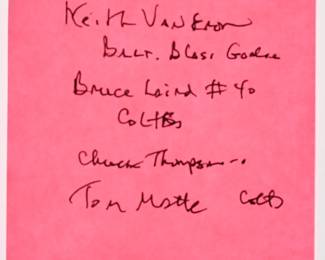 Keith Van Eron
Balt. Blast Goalie
Bruce Laird #40
Colts
Chuck Thompson--
Tom Matte Colts